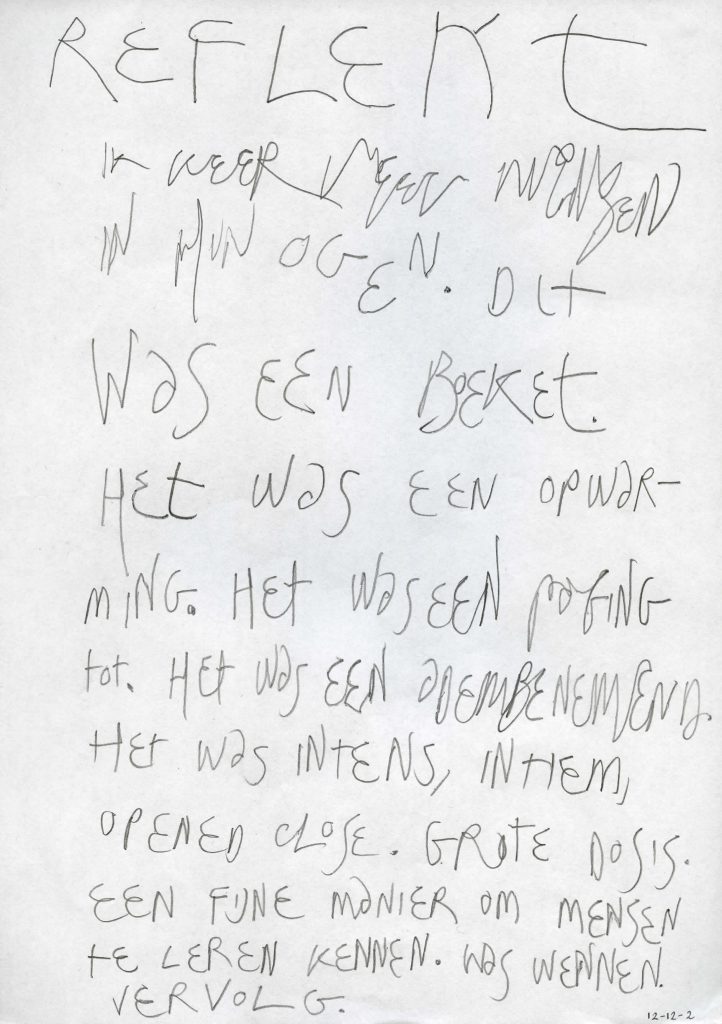 REFLEKT
IK WEER VEEL MENSEN
IN MIJN OGEN. DIT
WAS EEN BOEKET.
HET WAS EEN OPWAR-
MING. HET WAS EEN POGING
TOT. HET WAS EEN ADEMBENEMEND.
HET WAS INTENS, INTIEM,
OPENED CLOSE. GROTE DOSIS.
EEN FIJNE MANIER OM MENSEN
TE LEREN KENNEN. WAS WENNEN.
VERVOLG.
12-12-2